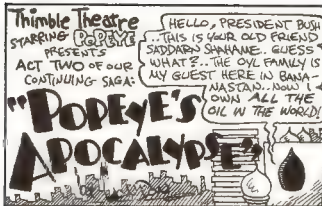 Thimble Theatre
STARRING POPEYE
PRESENTS
ACT TWO OF OUR
CONTINUING SAGA:
"POPEYE'S
APOCALYPSE"
HELLO, PRESIDENT BUSH
..THIS IS YOUR OLD FRIEND
SADDARN SHAHAME. GUESS
WHAT?..THE OYL FAMILY IS
MY GUEST HERE IN BANA-
NASTAN..NOW I
OWN ALL THE
OIL IN THE WORLD!